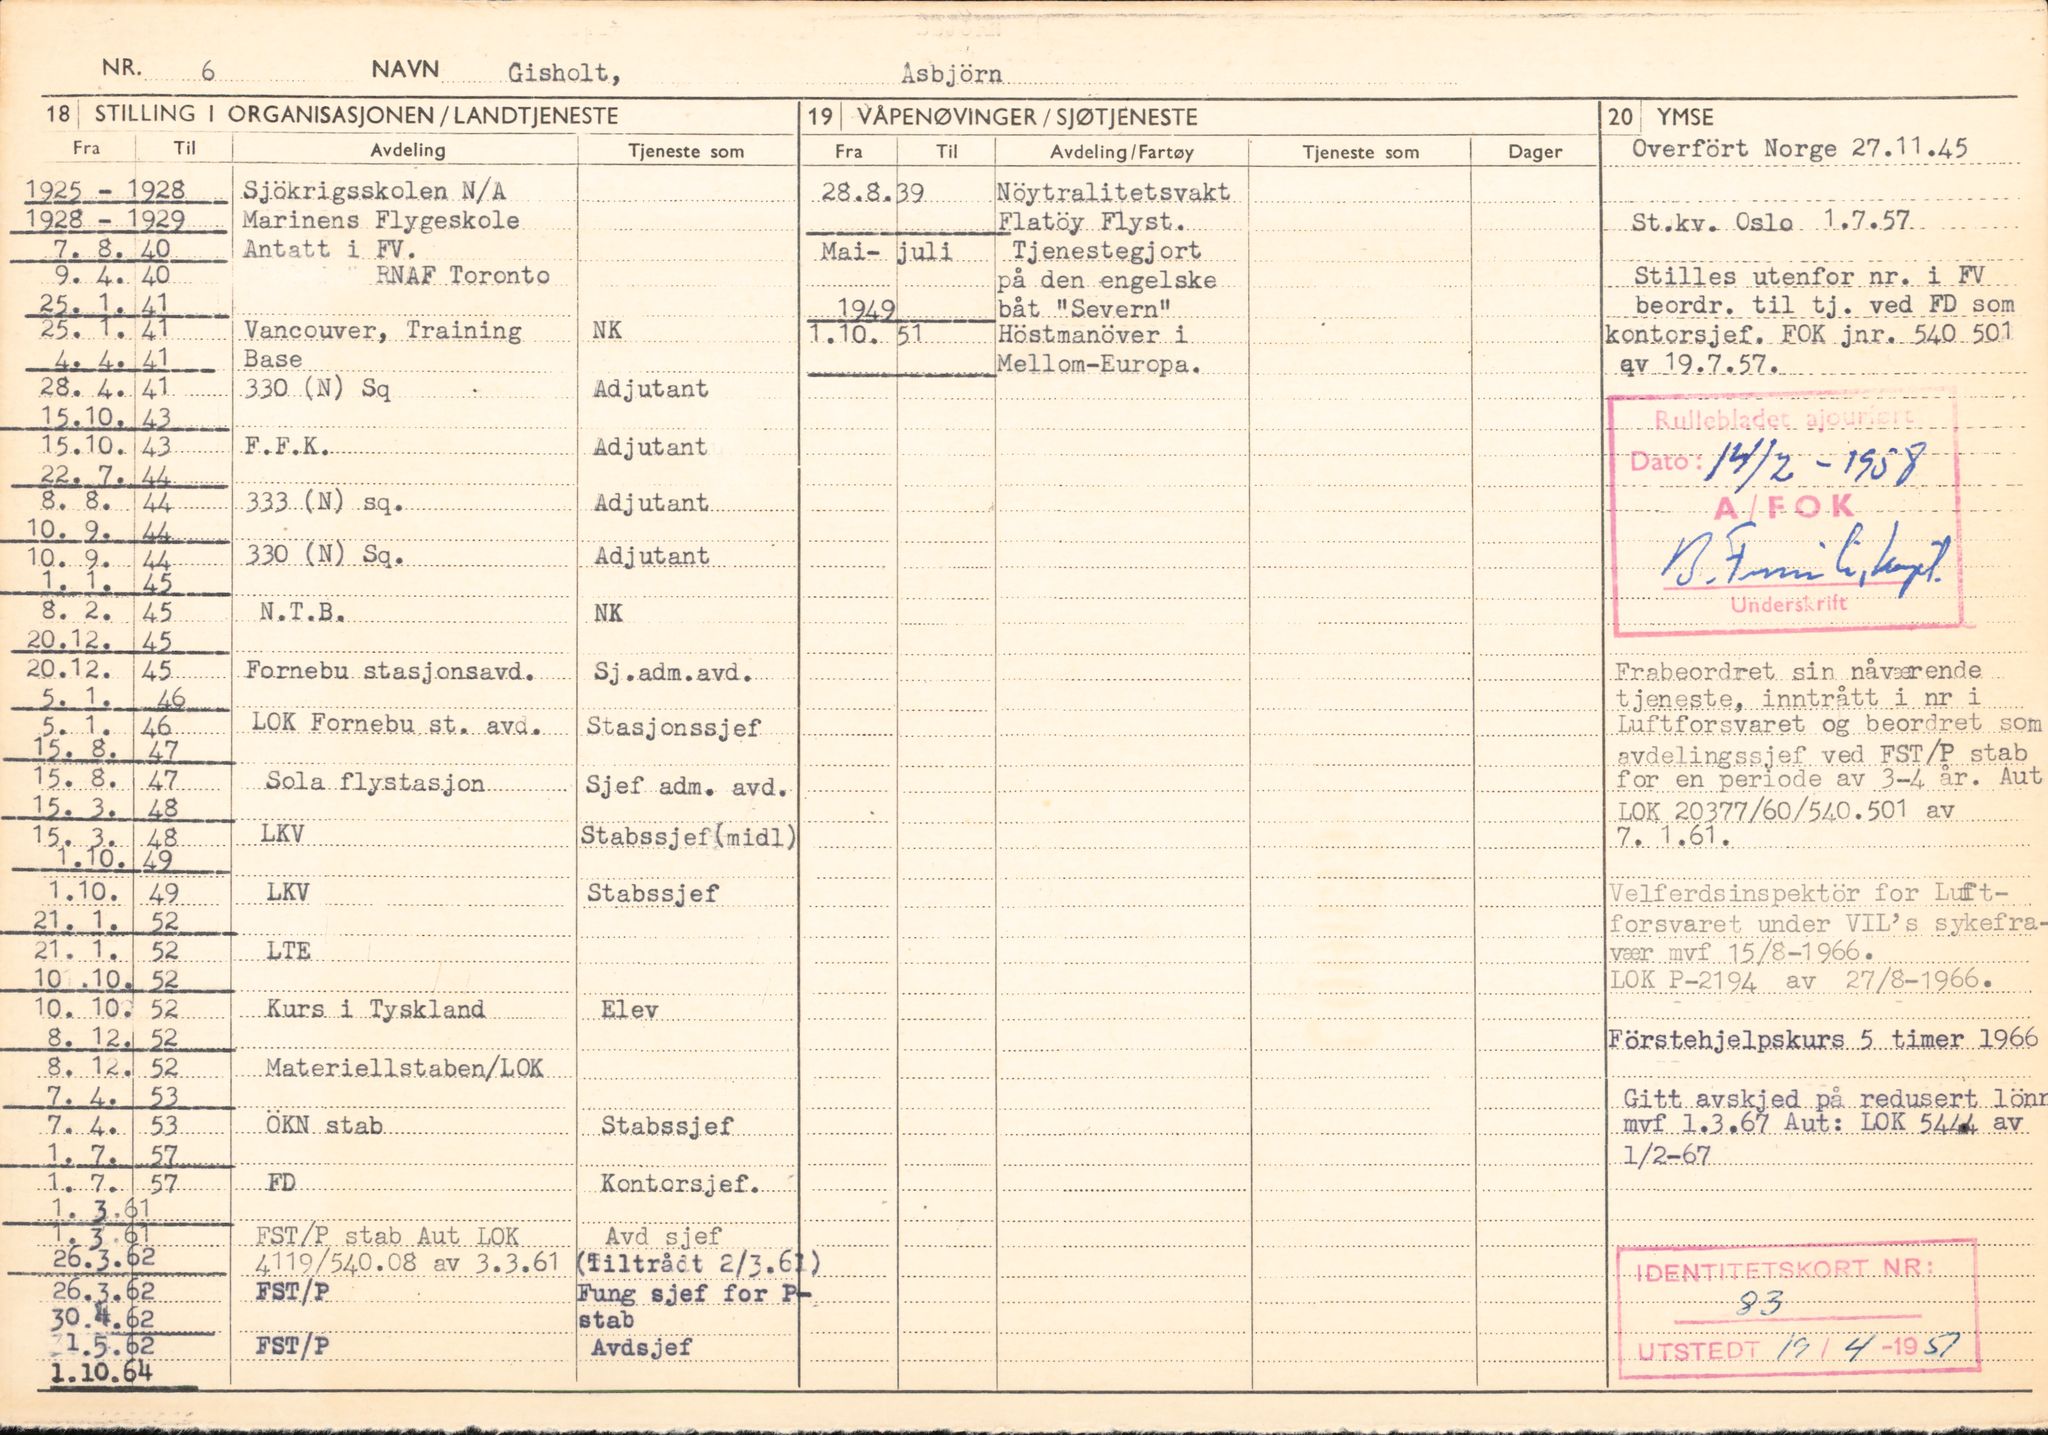 NR. 6 NAVN Gisholt, Asbjörn
18 STILLING I ORGANISASJONEN/LANDTJENESTE
Fra Til Avdeling Tjeneste som
1925 - 1928 Sjökrigsskolen N/A
1928 - 1929 Marinens Flygeskole
7. 8. 40 Antatt i FV.
9. 4. 40 RNAF Toronto
25. 1. 41
25. 1. 41 Vancouver, Training NK
4. 4. 41 Base
28. 4. 41 330 (N) Sq Adjutant
15.10. 43
15.10. 43 F.F.K. Adjutant
22. 7. 44
8. 8. 44 333 (N) sq. Adjutant
10. 9. 44
10. 9. 44 330 (N) Sq. Adjutant
1. 1. 45
8. 2. 45 N.T.B. NK
20.12. 45
20.12. 45 Fornebu stasjonsavd. Sj.adm.avd.
5. 1. 46
5. 1. 46 LOK Fornebu st. avd. Stasjonssjef
15. 8. 47
15. 8. 47 Sola flystasjon Sjef adm. avd.
15. 3. 48
15. 3. 48 LKV Stabssjef(midl)
1.10. 49
1.10. 49 LKV Stabssjef
21. 1. 52
21. 1. 52 LTE
10 .10. 52
10. 10. 52 Kurs i Tyskland Elev
8. 12. 52
8. 12. 52 Materiellstaben/LOK
7. 4. 53
7. 4. 53 ÖKN stab Stabssjef
1. 7. 57
1. 7. 57 FD Kontorsjef.
1. 3.61
1. 3.61 FST/P stab Aut LOK Avd sjef
26.3.62 4119/540.08 av 3.3.61 (Tiltrådt 2/3.61)
26.3.62 FST/P Fung sjef for P-
30.4.62 stab
1.5.62 FST/P Avdsjef
1.10.64
19 VÅPENØVINGER/SJØTJENESTE
Fra Til Avdeling/Fartøy Tjeneste som Dager
28.8.39 Nöytralitetsvakt
Flatöy Flyst.
Mai- juli Tjenestegjort
på den engelske
1949 båt "Severn"
1.10. 51 Höstmanöver i
Mellom-Europa.
20 YMSE
Overfört Norge 27.11.45
St.kv. Oslo 1.7.57
Stilles utenfor nr. i FV
beordr. til tj. ved FD som
kontorsjef. FOK jnr. 540 501
av 19.7.57.
Rullebladet ajourført
Dato: 14/2 - 1958
A/FOK
Underskrift
Frabeordret sin nåværende
tjeneste, inntrått i nr i
Luftforsvaret og beordret som
avdelingssjef ved FST/P stab
for en periode av 3-4 år. Aut
LOK 20377/60/540.501 av
7. 1.61.
Velferdsinspektör for Luft-
forsvaret under VIL's sykefra-
vær mvf 15/8-1966.
LOK P-2194 av 27/8-1966.
Förstehjelpskurs 5 timer 1966
Gitt avskjed på redusert lönn
mvf 1.3.67 Aut: LOK 5444 av
1/2-67
IDENTITETSKORT NR:
83
UTSTEDT 19 / 4 -1957